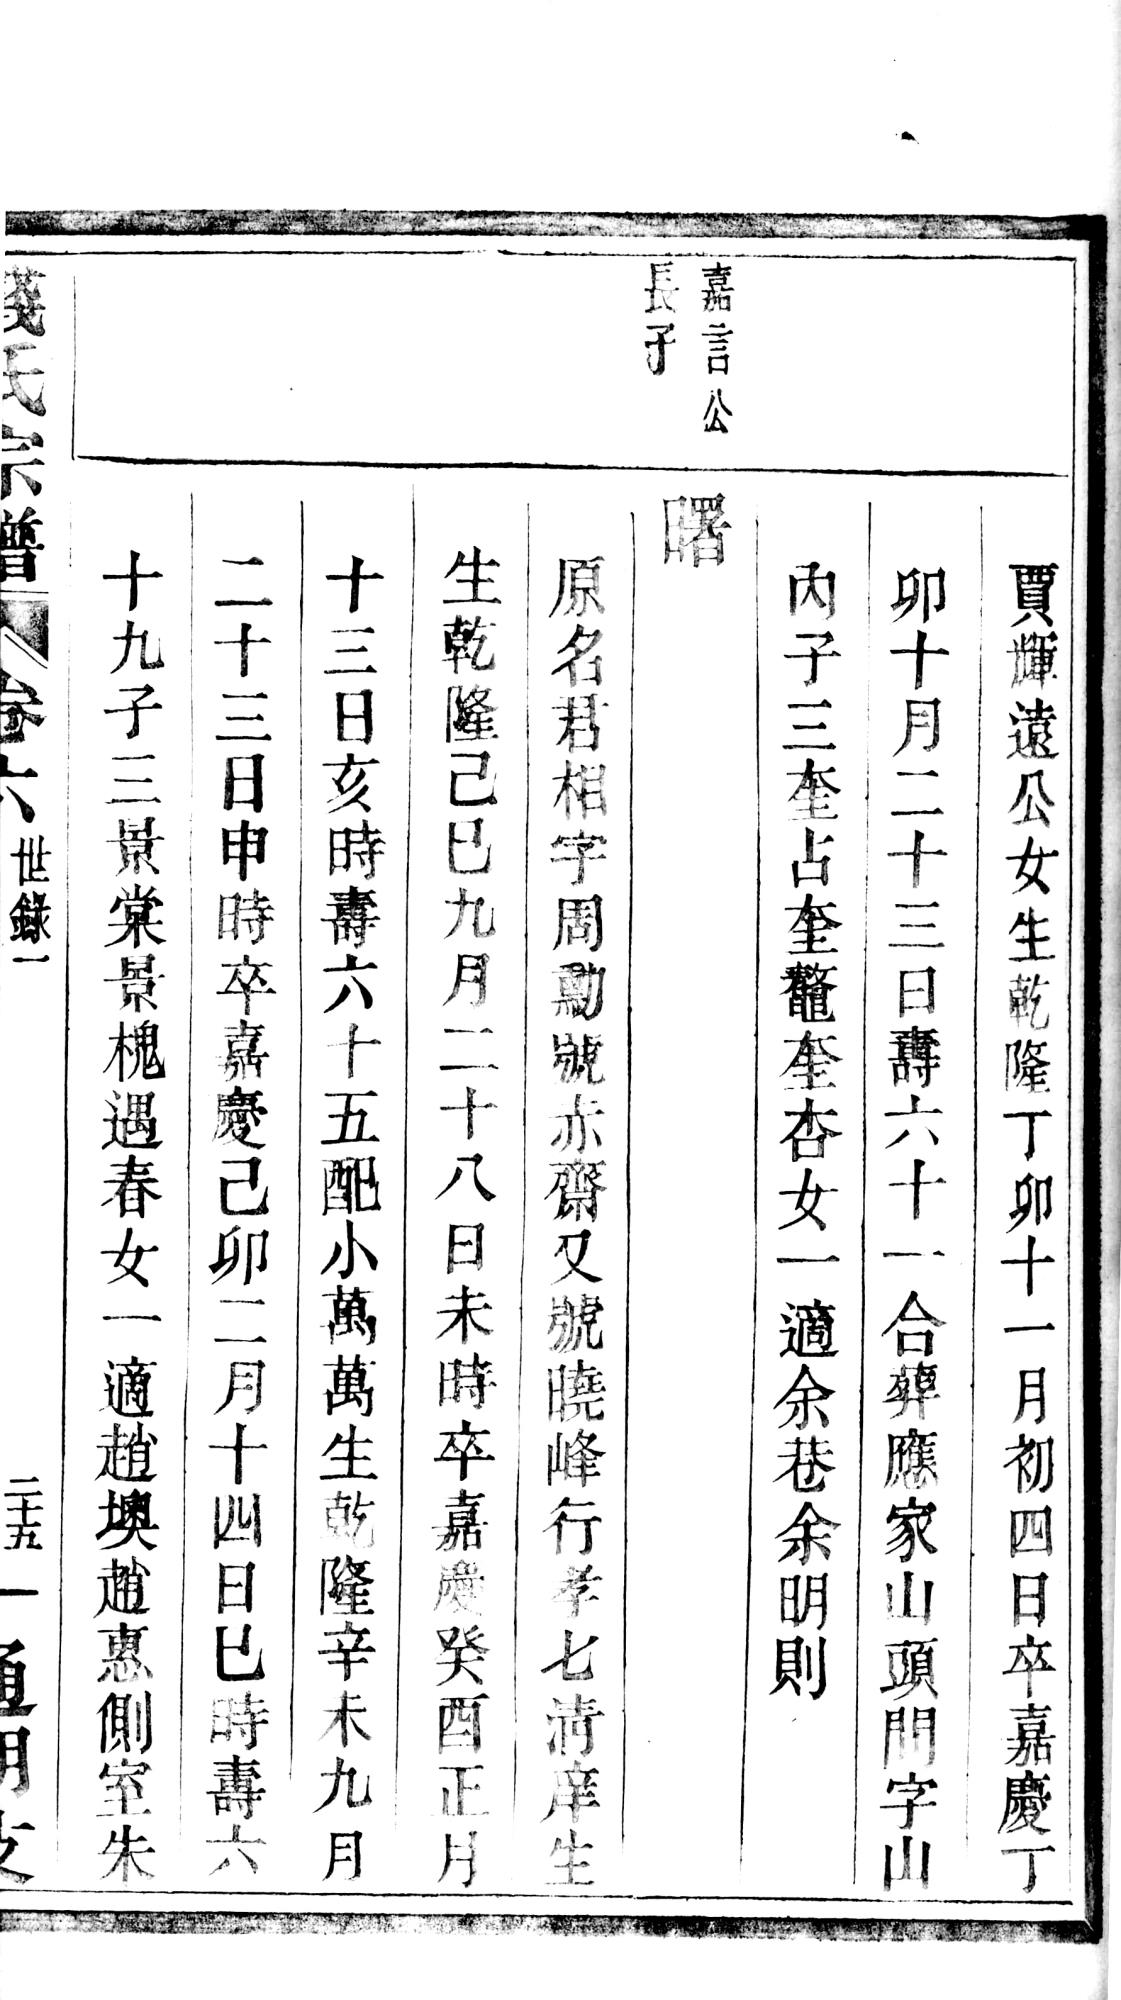 賈輝遠公女生乾隆丁卯十一月初四日卒嘉慶丁
卯十月二十三日壽六十一合葬應家山頭閗字山
內子三奎占奎鼇奎杏女一適余巷余明則
嘉言公
長子
曙
原名君相字周勳號赤齋又號曉峰行孝七清庠生
生乾隆己巳九月二十八日未時卒嘉慶癸酉正月
十三日亥時壽六十五配小萬萬生乾隆辛未九月
二十三日申時卒嘉慶己卯二月十四日巳時壽六
十九子三景棠景槐遇春女一適趙墺趙惠側室朱
錢氏宗譜
卷六
世錄一
二十五
通明支